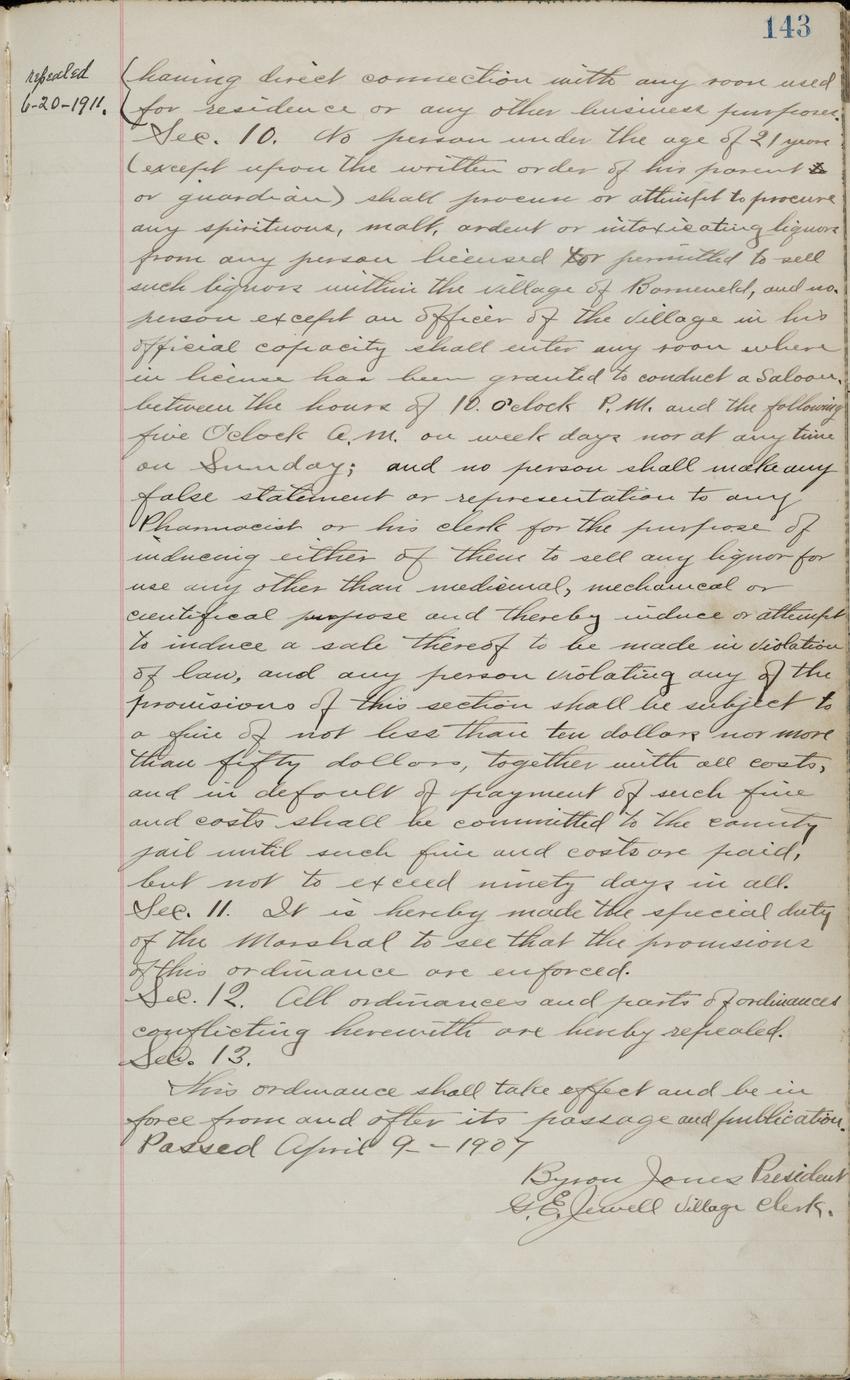 143
repealed
6-20-1911.
having direct connection with any room used
for residence or any other business purposes.
Sec. 10. No person under the age of 21 years
(except upon the written order of his parent
or guardian) shall procure or attempt to procure
any spirituous, malt, ardent or intoxicating liquors
from any person licensed or permitted to sell
such liquors within the village of Barneveld, and no
person except an officer of the village in his
official capacity shall enter any room where
in license has been granted to conduct a Saloon,
between the hours of 10. O'clock P.M. and the following
five O'clock A.M. on week days nor at any time
on Sunday; and no person shall make any
false statement or representation to any
Pharmacist or his clerk for the purpose of
inducing either of them to sell any liquor for
use any other than medicinal, mechanical or
cientifical purpose and thereby induce or attempt
to induce a sale thereof to be made in violation
of law, and any person violating any of the
provisions of this section shall be subject to
a fine of not less than ten dollars nor more
than fifty dollars, together with all costs,
and in default of payment of such fine
and costs shall be committed to the county
jail until such fine and costs are paid,
but not to exceed ninety days in all.
Sec. 11. It is hereby made the special duty
of the Marshal to see that the provisions
of this ordinance are enforced.
Sec. 12. All ordinances and parts of ordinances
conflicting herewith are hereby repealed.
Sec. 13.
This ordinance shall take effect and be in
force from and after its passage and publication.
Passed April 9 - 1907
Byron Jones President
G. E. Jewell Village Clerk.